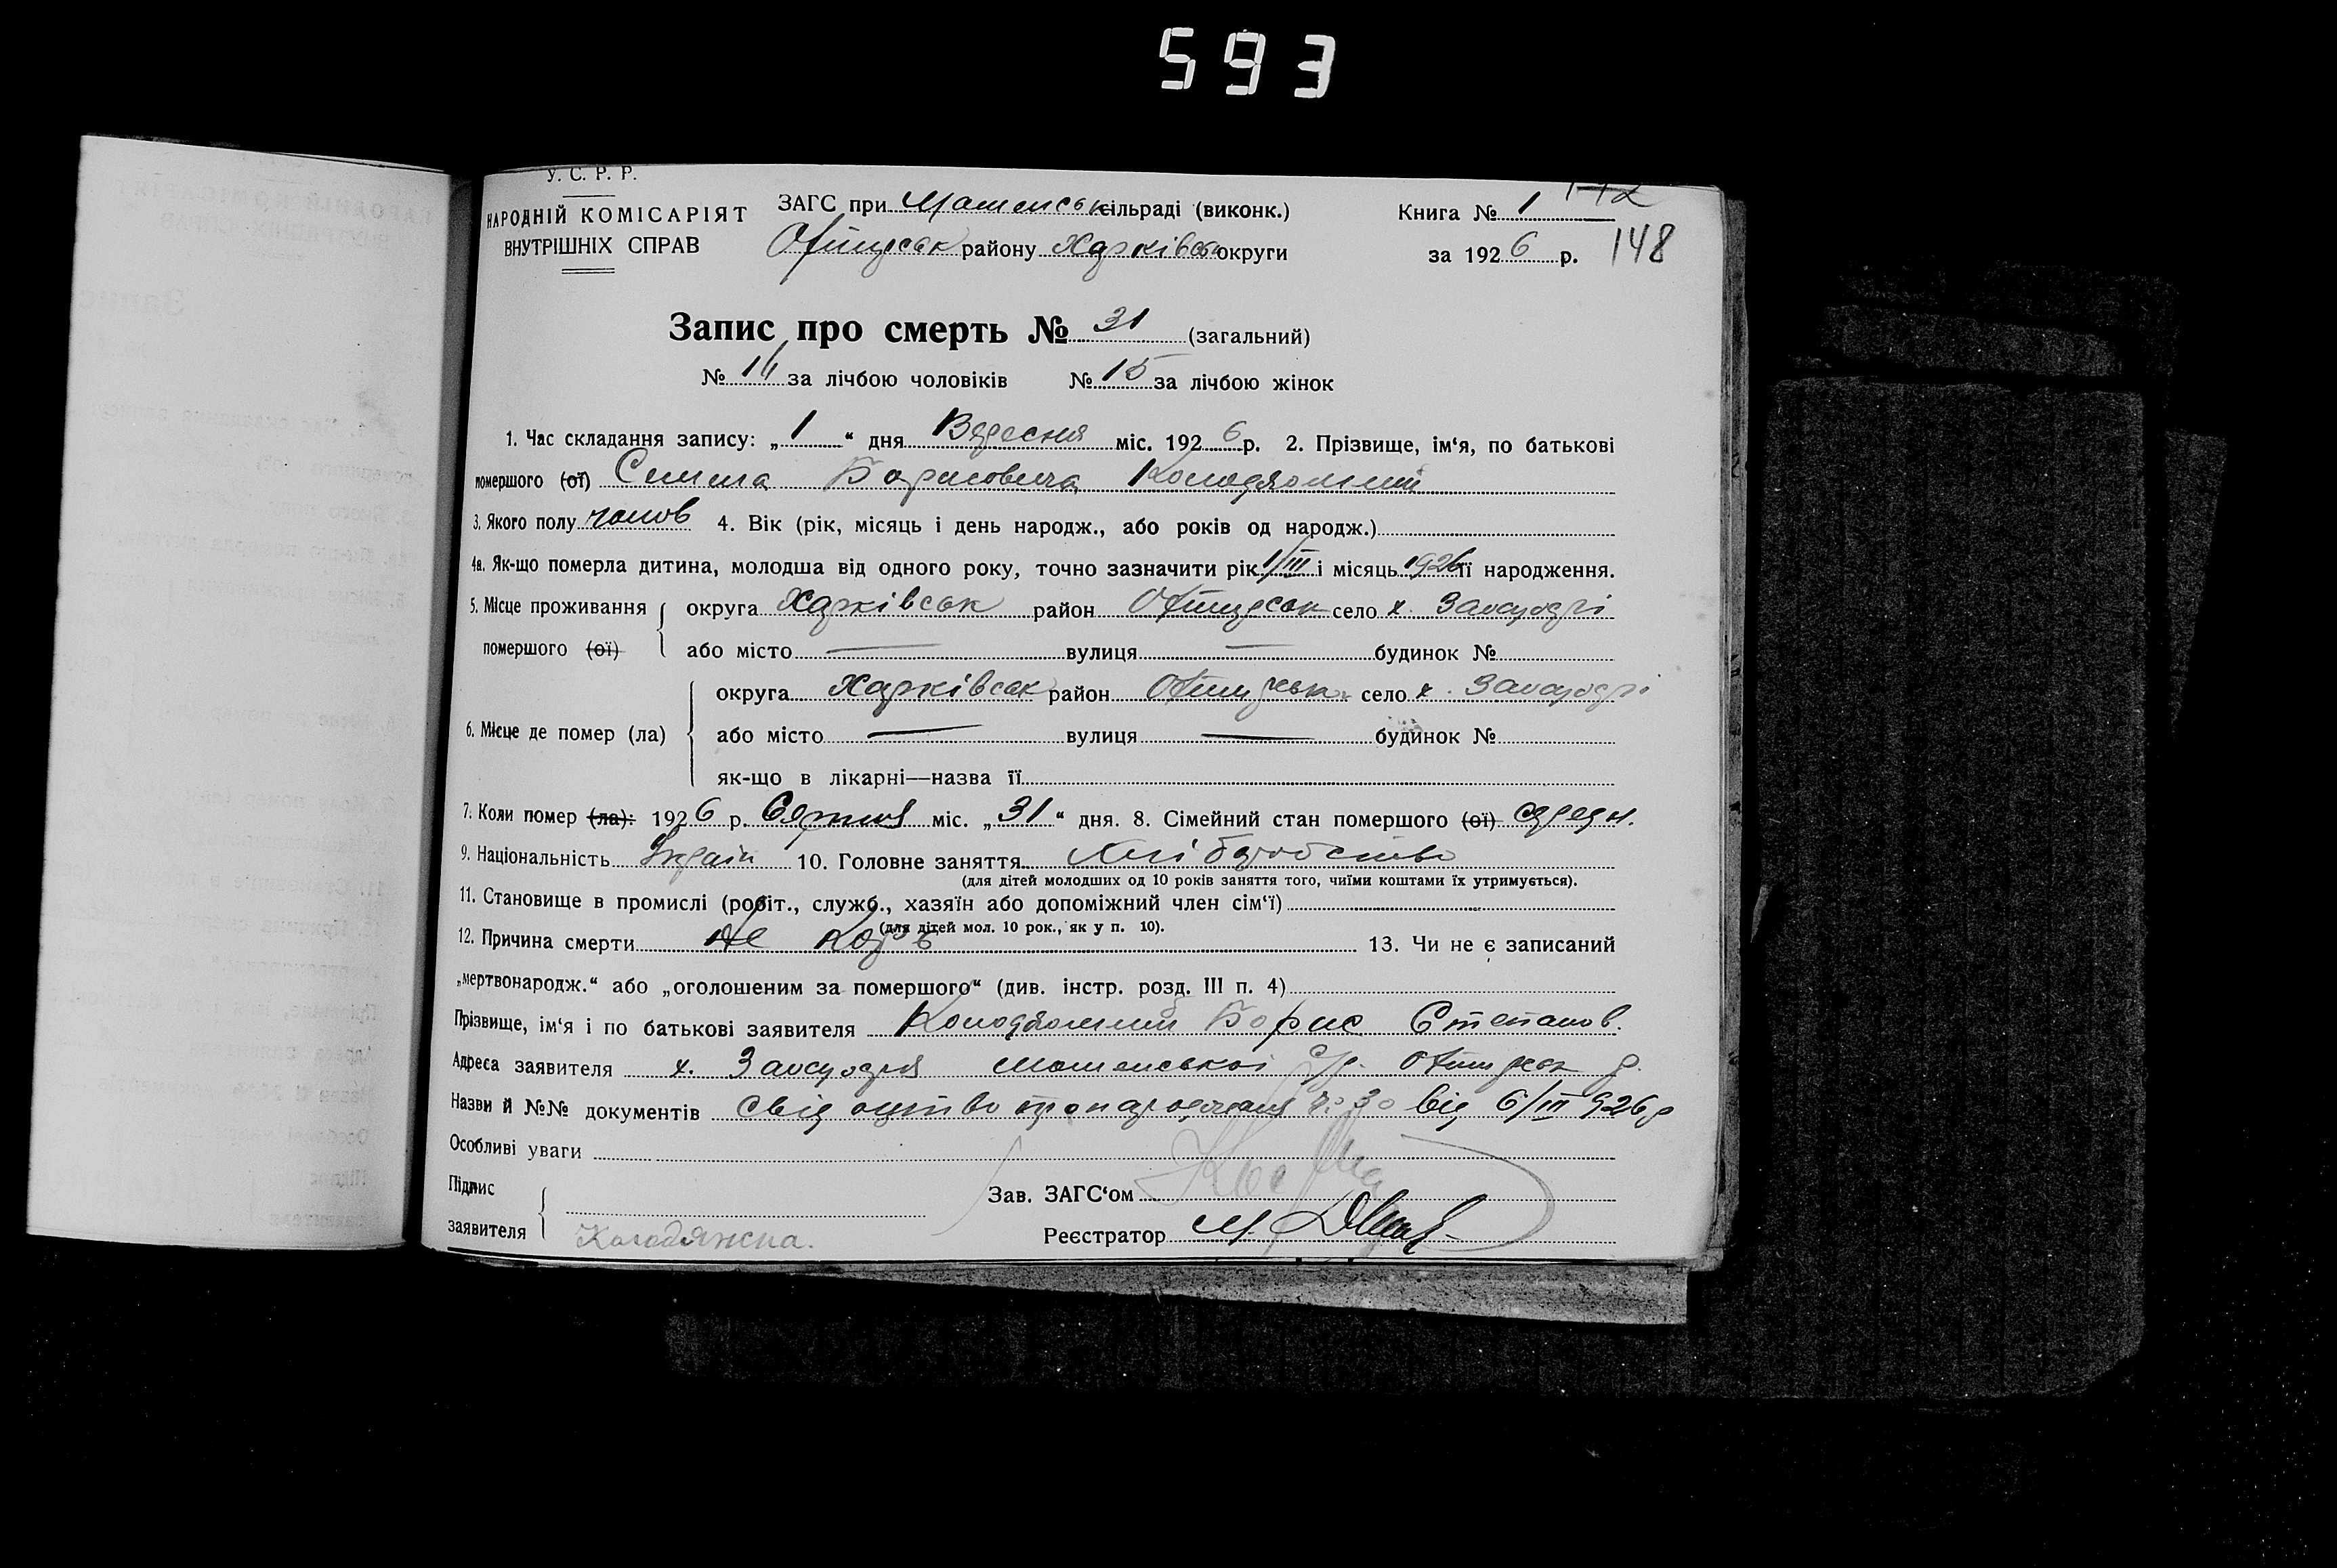 593
У. С. Р. Р.
НАРОДНІЙ КОМІСАРІЯТ
ВНУТРІШНІХ СПРАВ
ЗАГС при сільраді (виконк.)
району Харківськ округи
Книга № 1
за 1926 р. 148
Запис про смерть № 31 (загальний)
№ 16 за лічбою чоловіків № 15 за лічбою жінок
1. Час складання запису: „1“ дня Вересня міс. 1926 р. 2. Прізвище, ім‘я, по батькові
помершого (ої) Борисовича
3. Якого полу чолов 4. Вік (рік, місяць і день народж., або років од народж.)
4а. Як-що померла дитина, молодша від одного року, точно зазначити рік 1/III і місяць 1926 її народження.
5. Місце проживання помершого (ої) округа Харківськ район село х.
або місто — вулиця — будинок №
6. Місце де помер (ла) округа Харківськ район село х.
або місто — вулиця — будинок №
як-що в лікарні—назва її
7. Коли помер (ла): 1926 р. Серпня міс. „31“ дня. 8. Сімейний стан помершого (ої)
9. Національність Украін 10. Головне заняття Хліборобство
(для дітей молодших од 10 років заняття того, чиїми коштами їх утримується).
11. Становище в промислі (робіт., служб., хазяїн або допоміжний член сім‘ї)
(для дітей мол. 10 рок., як у п. 10).
12. Причина смерти 13. Чи не є записаний
„мертвонародж.“ або „оголошеним за помершого“ (див. інстр. розд. III п. 4)
Прізвище, ім‘я і по батькові заявителя Колодяжний Борис Степанов.
Адреса заявителя х.
Назви й №№ документів свідоцтво про народження № 30 від 6/III 926 р
Особливі уваги
Підпис
заявителя Колодяжна.
Зав. ЗАГС‘ом
Реєстратор